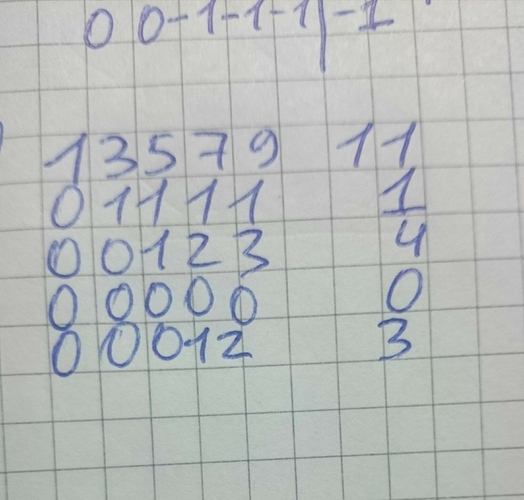 0 0 -1 -1 -1 | -1
1 3 5 7 9 11
0 1 1 1 1 1
0 0 1 2 3 4
0 0 0 0 0 0
0 0 0 1 2 3